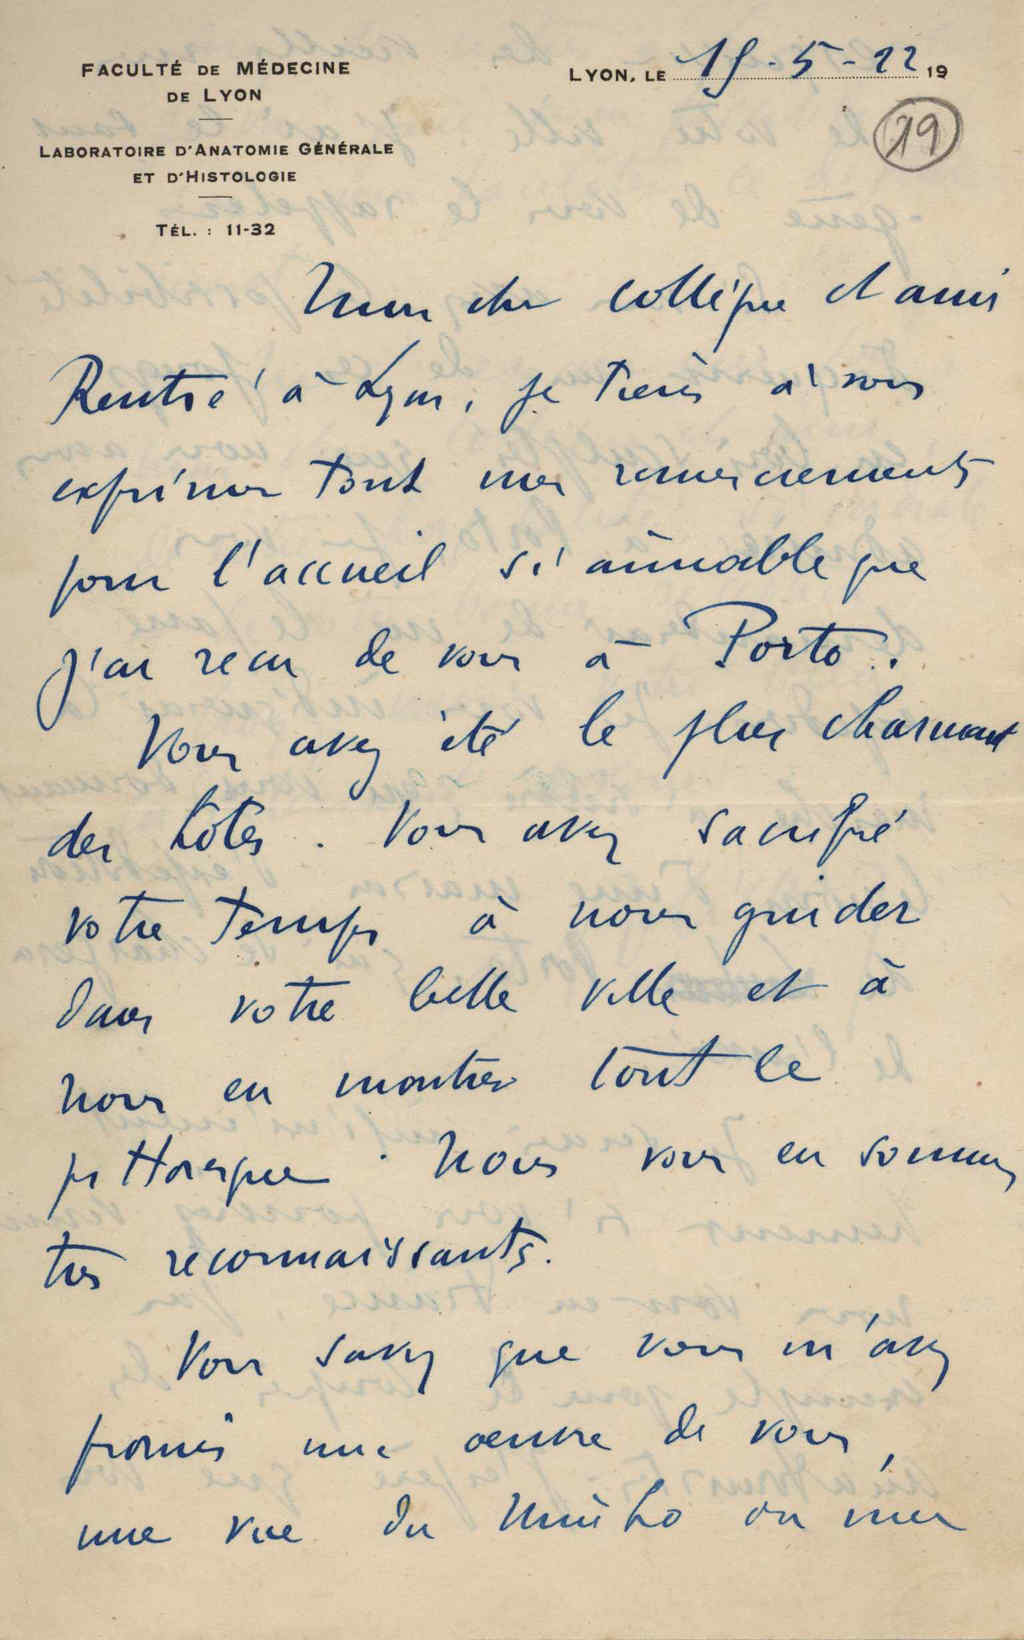 FACULTÉ DE MÉDECINE
DE LYON
LABORATOIRE D'ANATOMIE GÉNÉRALE
ET D'HISTOLOGIE
TÉL. : 11-32
LYON, LE 19-5-22 19
19
Mon cher collègue et ami
Rentré à Lyon, je tiens à vous
exprimer tout mes remerciements
pour l'accueil si aimable que
j'ai reçu de vous à Porto.
Vous avez été le plus charmant
des hôtes. Vous avez sacrifié
votre temps à nous guider
dans votre belle ville et à
nous en montrer tout le
pittoresque. Nous vous en sommes
très reconnaissants.
Vous savez que vous m'avez
promis une œuvre de vous,
une vue du Minho ou une